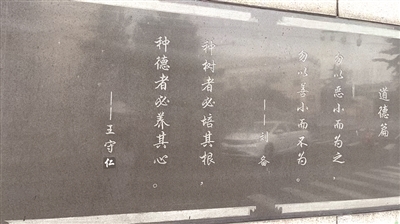 道德篇
勿以恶小而为之，
勿以善小而不为。
——刘备
种树者必培其根，
种德者必养其心。
——王守仁